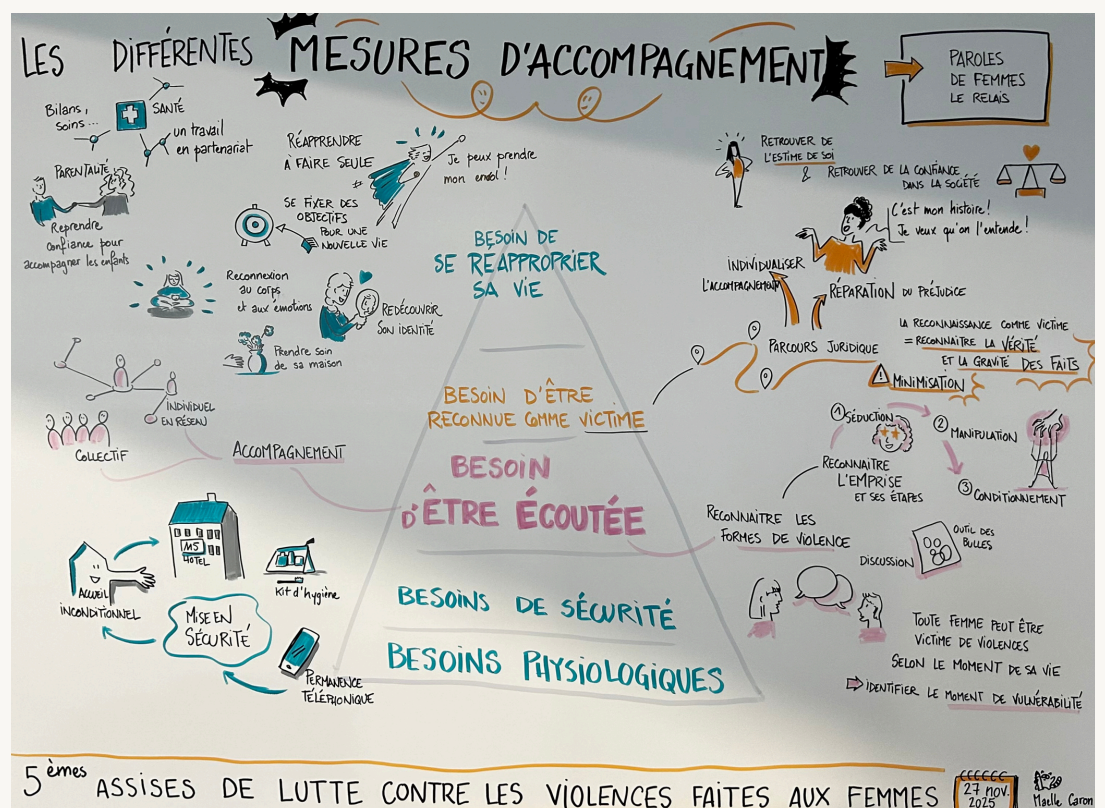 LES DIFFÉRENTES MESURES D'ACCOMPAGNEMENT
PAROLES
DE FEMMES
LE RELAIS
Bilans,
soins...
SANTÉ
un travail
en partenariat
PARENTALITÉ
Reprendre
confiance pour
accompagner les enfants
RÉAPPRENDRE
À FAIRE SEULE
Je peux prendre
mon envol !
SE FIXER DES
OBJECTIFS
POUR UNE
NOUVELLE VIE
Reconnexion
au corps
et aux émotions
REDÉCOUVRIR
SON IDENTITÉ
Prendre soin
de sa maison
INDIVIDUEL
EN RÉSEAU
COLLECTIF
ACCOMPAGNEMENT
115
HOTEL
ACCUEIL
INCONDITIONNEL
Kit d'hygiène
MISE EN
SÉCURITÉ
PERMANENCE
TÉLÉPHONIQUE
BESOIN DE
SE RÉAPPROPRIER
SA VIE
BESOIN D'ÊTRE
RECONNUE COMME VICTIME
BESOIN
D'ÊTRE ÉCOUTÉE
BESOINS DE SÉCURITÉ
BESOINS PHYSIOLOGIQUES
RETROUVER DE
L'ESTIME DE SOI
& RETROUVER DE LA CONFIANCE
DANS LA SOCIÉTÉ
C'est mon histoire !
Je veux qu'on l'entende !
INDIVIDUALISER
L'ACCOMPAGNEMENT
RÉPARATION DU PRÉJUDICE
PARCOURS JURIDIQUE
LA RECONNAISSANCE COMME VICTIME
= RECONNAÎTRE LA VÉRITÉ
ET LA GRAVITÉ DES FAITS
! MINIMISATION
1 SÉDUCTION
2 MANIPULATION
3 CONDITIONNEMENT
RECONNAITRE
L'EMPRISE
ET SES ÉTAPES
RECONNAITRE LES
FORMES DE VIOLENCE
OUTIL DES
BULLES
DISCUSSION
TOUTE FEMME PEUT ÊTRE
VICTIME DE VIOLENCES
SELON LE MOMENT DE SA VIE
IDENTIFIER LE MOMENT DE VULNÉRABILITÉ
5èmes ASSISES DE LUTTE CONTRE LES VIOLENCES FAITES AUX FEMMES
27 NOV.
2025
Maëlle Caron